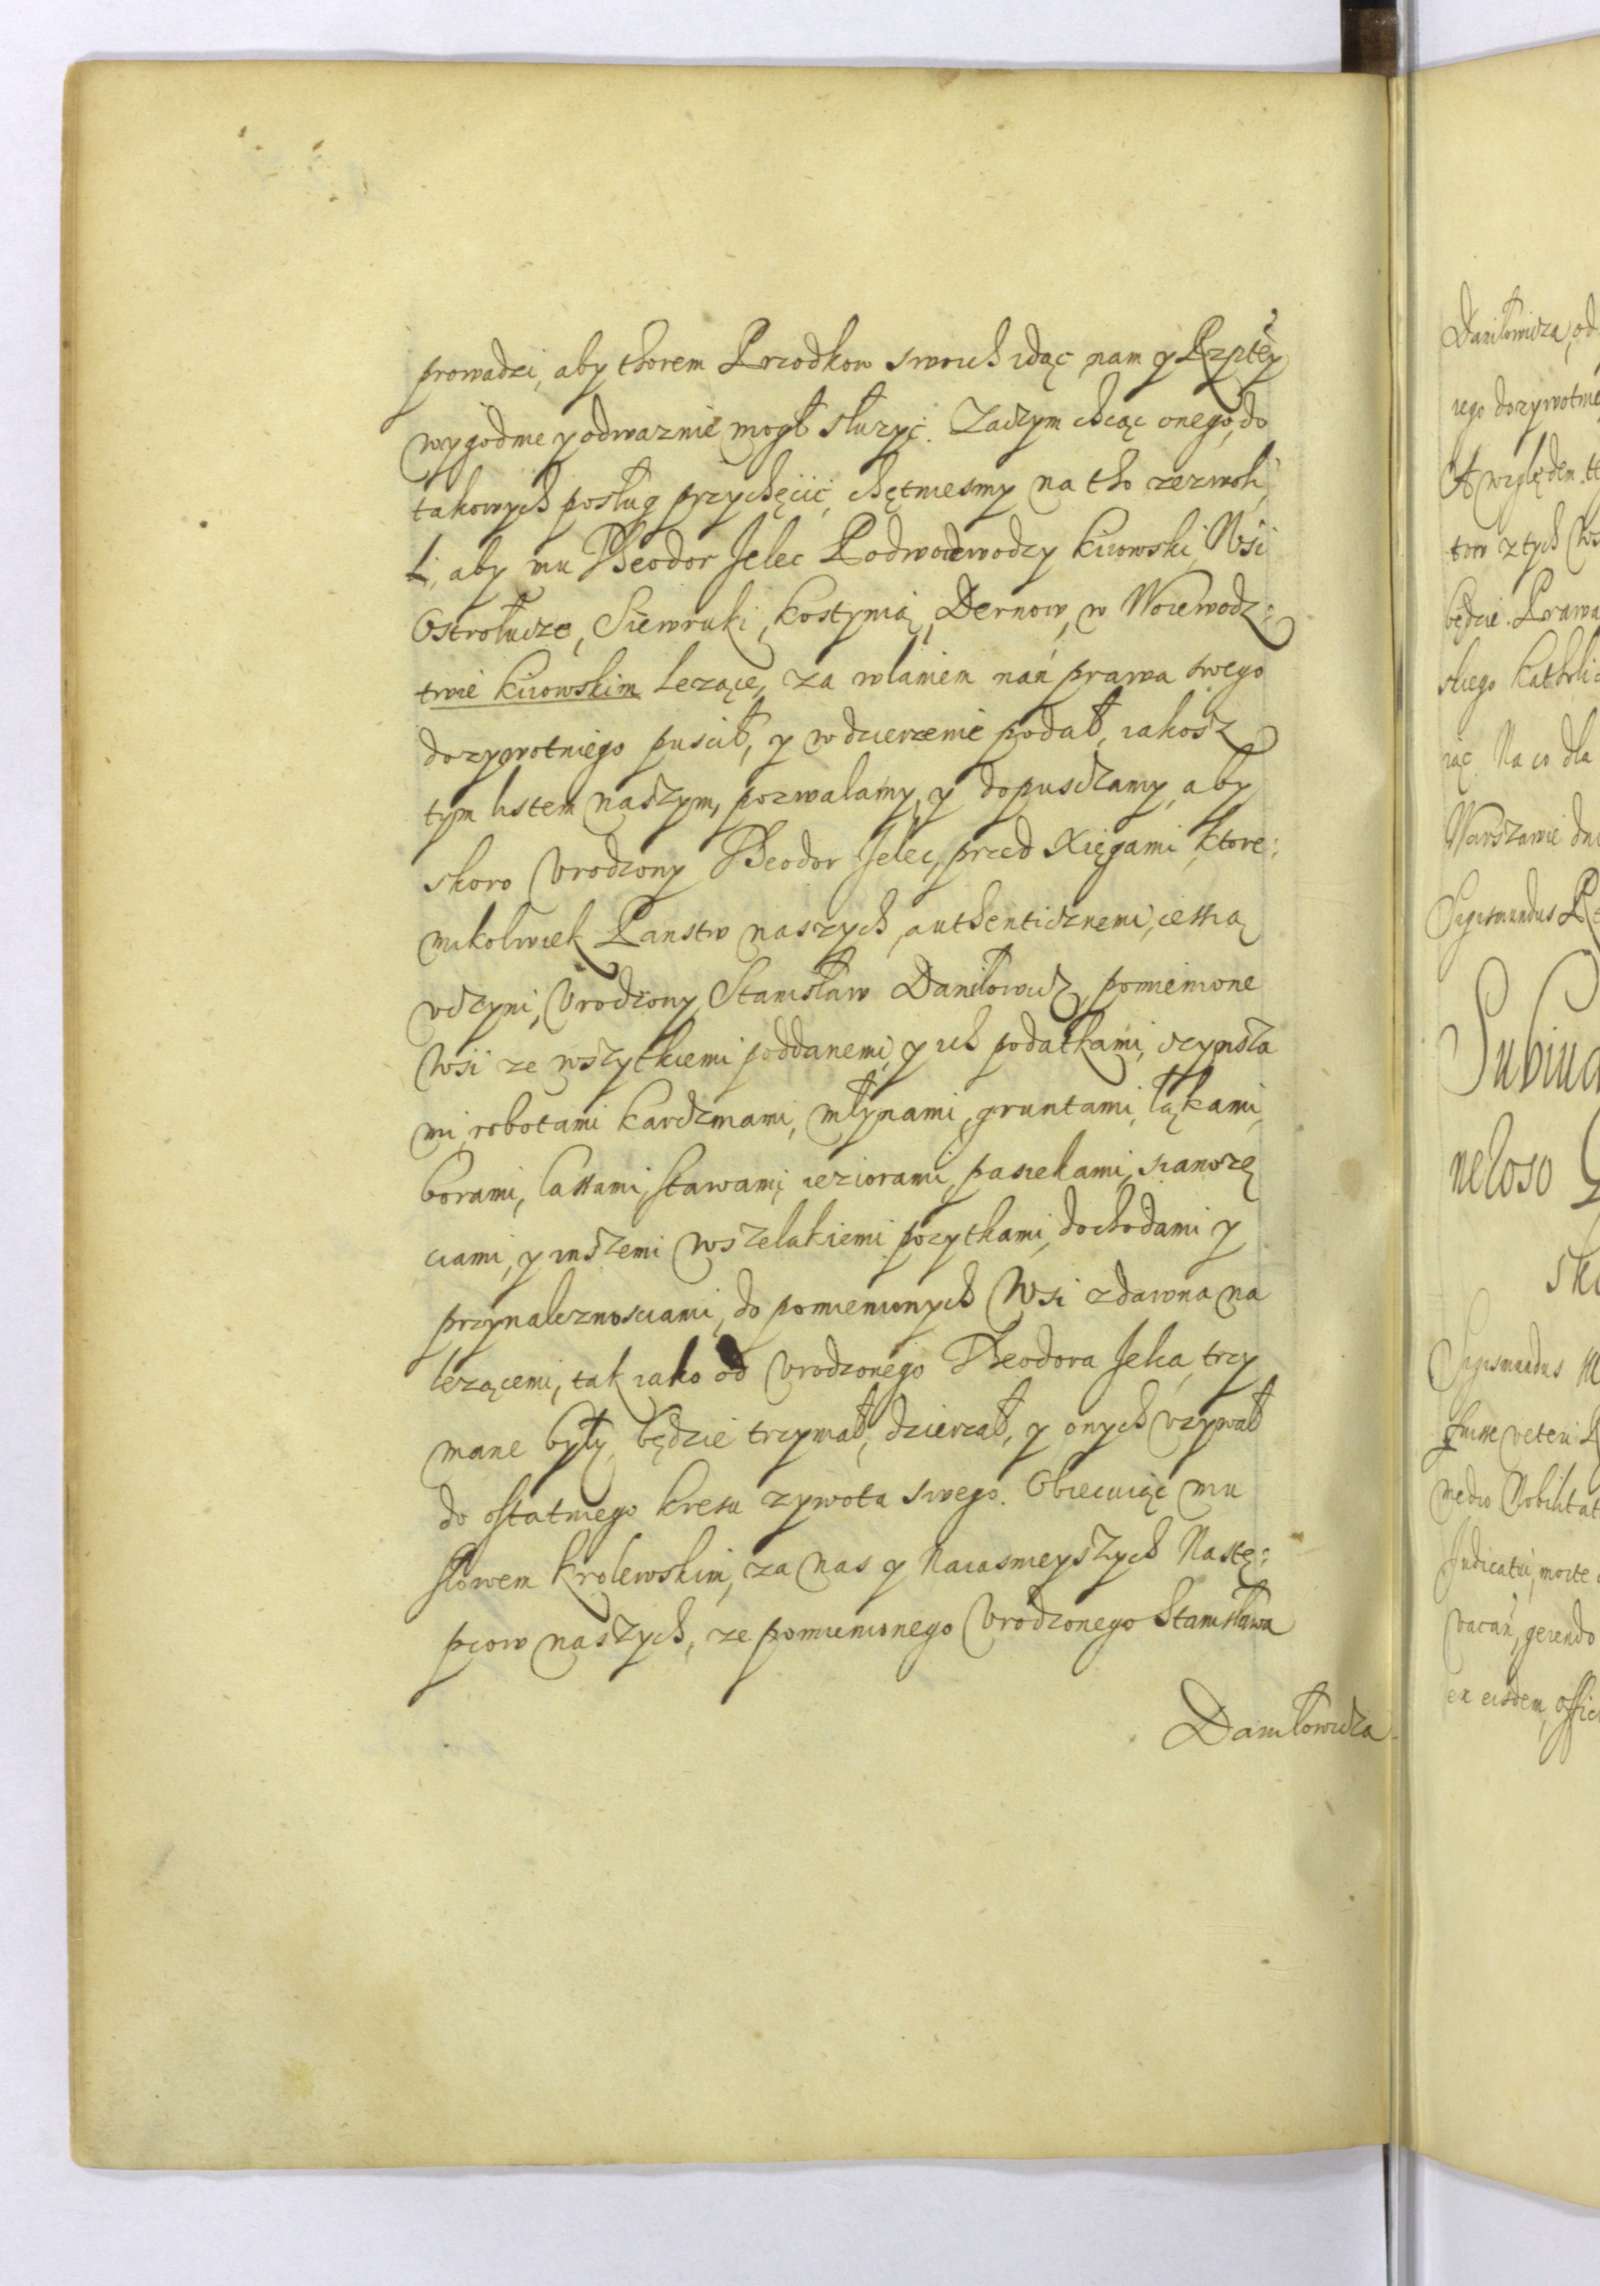 prowadzi, aby thorem Przodkow swoich idąc nam y Rzptey
wygodnie y odwaznie mogł słuzyć. Zaczym chcąc onego, do
takowych posług przychęcić, chętniesmy na tho zezwoli
li, aby mu Theodor Jelec Podwoiewodzy kiiowski, Wsi
Ostrołucze, Siewruki, Kostynią, Dernow, w Woiewodz:
twie kiiowskim lezące, za wlaniem nań prawa swego
dozywotniego puscił, y w dzierzenie podał, iakosz
tym listem naszym, pozwalamy, y dopusczamy, aby
skoro Vrodzony Theodor Jelec, przed Xięgami, ktore:
mikolwiek Panstw naszych, authenticznemi, cessią
vczyni, Vrodzony Stanisław Daniłowicz, pomienione
Wsi ze wszytkiemi poddanemi, y ich podatkami, czynsza
mi, robotami karczmami, młynami, gruntami, łąkami,
borami, lassami, stawami ieziorami, pasiekami, sianozę
ciami, y inszemi wszelakiemi pozytkami, dochodami y
przynaleznosciami, do pomienionych Wsi zdawna na
lezącemi, tak iako od Vrodzonego Theodora Jelca, trzy
mane były, będzie trzymał, dzierzał, y onych vzywał
do ostatniego kresu zywota swego. Obiecuiąc mu
słowem krolewskim, za nas y Naiasnieyszych Nastę:
pcow naszych, ze pomienionego Vrodzonego Stanisława
Daniłowicza
Daniłowicza, od
iego dozywotnie
A względem
tow z tych Ws
będzie. Prawa
skiego Katholic
iąc. Na co dla
Warszawie dni
Sigismundus
neroso
Sigismundus
fuisse veteri
medio Nobilitat
Judicatui, morte
vacan, gerendo
ex eisdem, offic